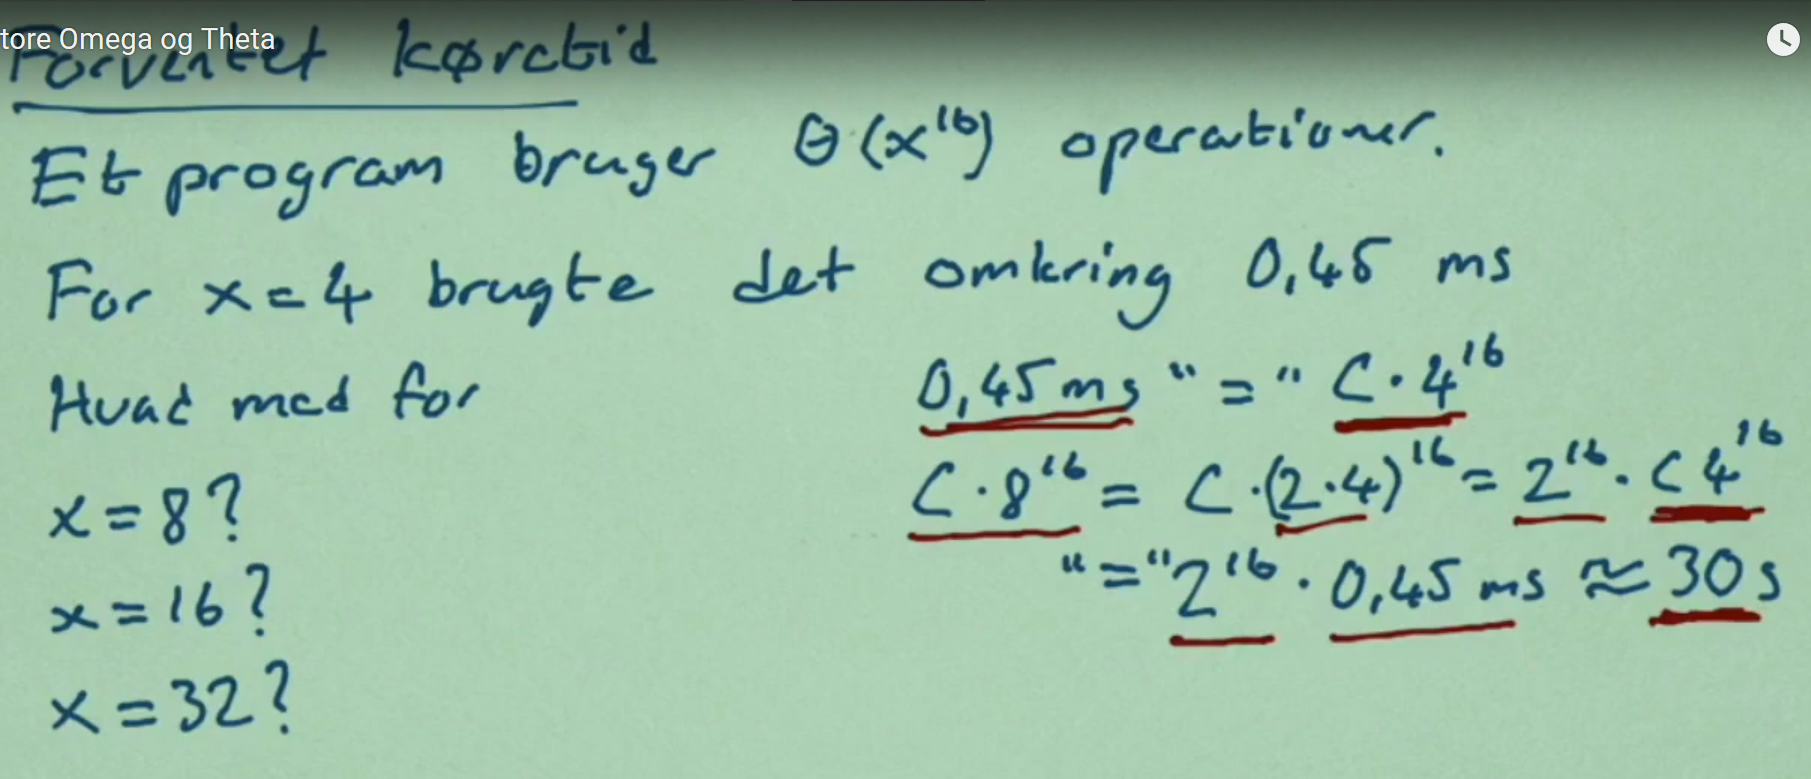 tore Omega og Theta
Forventet køretid
Et program bruger Θ(x¹⁶) operationer.
For x = 4 brugte det omkring 0,45 ms
Hvad med for
0,45 ms "=" C · 4¹⁶
x = 8?
C · 8¹⁶ = C · (2 · 4)¹⁶ = 2¹⁶ · C 4¹⁶
x = 16?
"=" 2¹⁶ · 0,45 ms ≈ 30 s
x = 32?